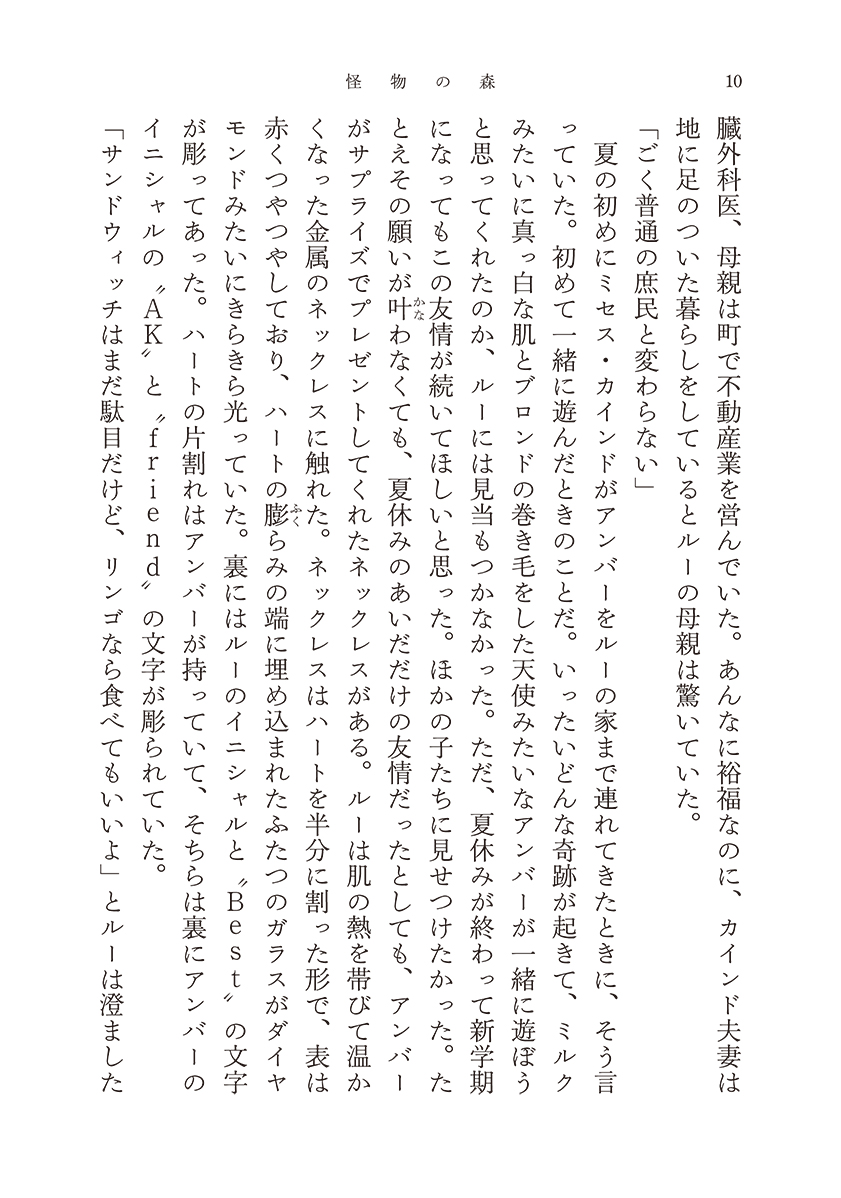 怪物の森
10
臓外科医、母親は町で不動産業を営んでいた。あんなに裕福なのに、カインド夫妻は
地に足のついた暮らしをしているとルーの母親は驚いていた。
「ごく普通の庶民と変わらない」
夏の初めにミセス・カインドがアンバーをルーの家まで連れてきたときに、そう言
っていた。初めて一緒に遊んだときのことだ。いったいどんな奇跡が起きて、ミルク
みたいに真っ白な肌とブロンドの巻き毛をした天使みたいなアンバーが一緒に遊ぼう
と思ってくれたのか、ルーには見当もつかなかった。ただ、夏休みが終わって新学期
になってもこの友情が続いてほしいと思った。ほかの子たちに見せつけたかった。た
とえその願いが叶わなくても、夏休みのあいだだけの友情だったとしても、アンバー
かな
がサプライズでプレゼントしてくれたネックレスがある。ルーは肌の熱を帯びて温か
くなった金属のネックレスに触れた。ネックレスはハートを半分に割った形で、表は
赤くつやつやしており、ハートの膨らみの端に埋め込まれたふたつのガラスがダイヤ
ふく
モンドみたいにきらきら光っていた。裏にはルーのイニシャルと〝Best〟の文字
が彫ってあった。ハートの片割れはアンバーが持っていて、そちらは裏にアンバーの
イニシャルの〝AK〟と〝friend〟の文字が彫られていた。
「サンドウィッチはまだ駄目だけど、リンゴなら食べてもいいよ」とルーは澄ました